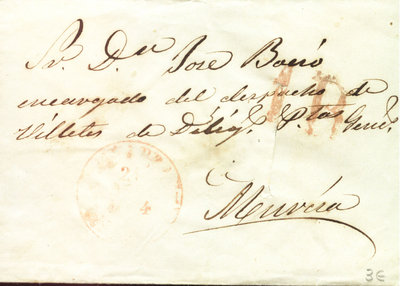 Sr. Dn. Jose Boeró
encargado del despacho de
Villetes de Dilig.s P.tas Gener.s
1 R
2
4
Murcia
3€